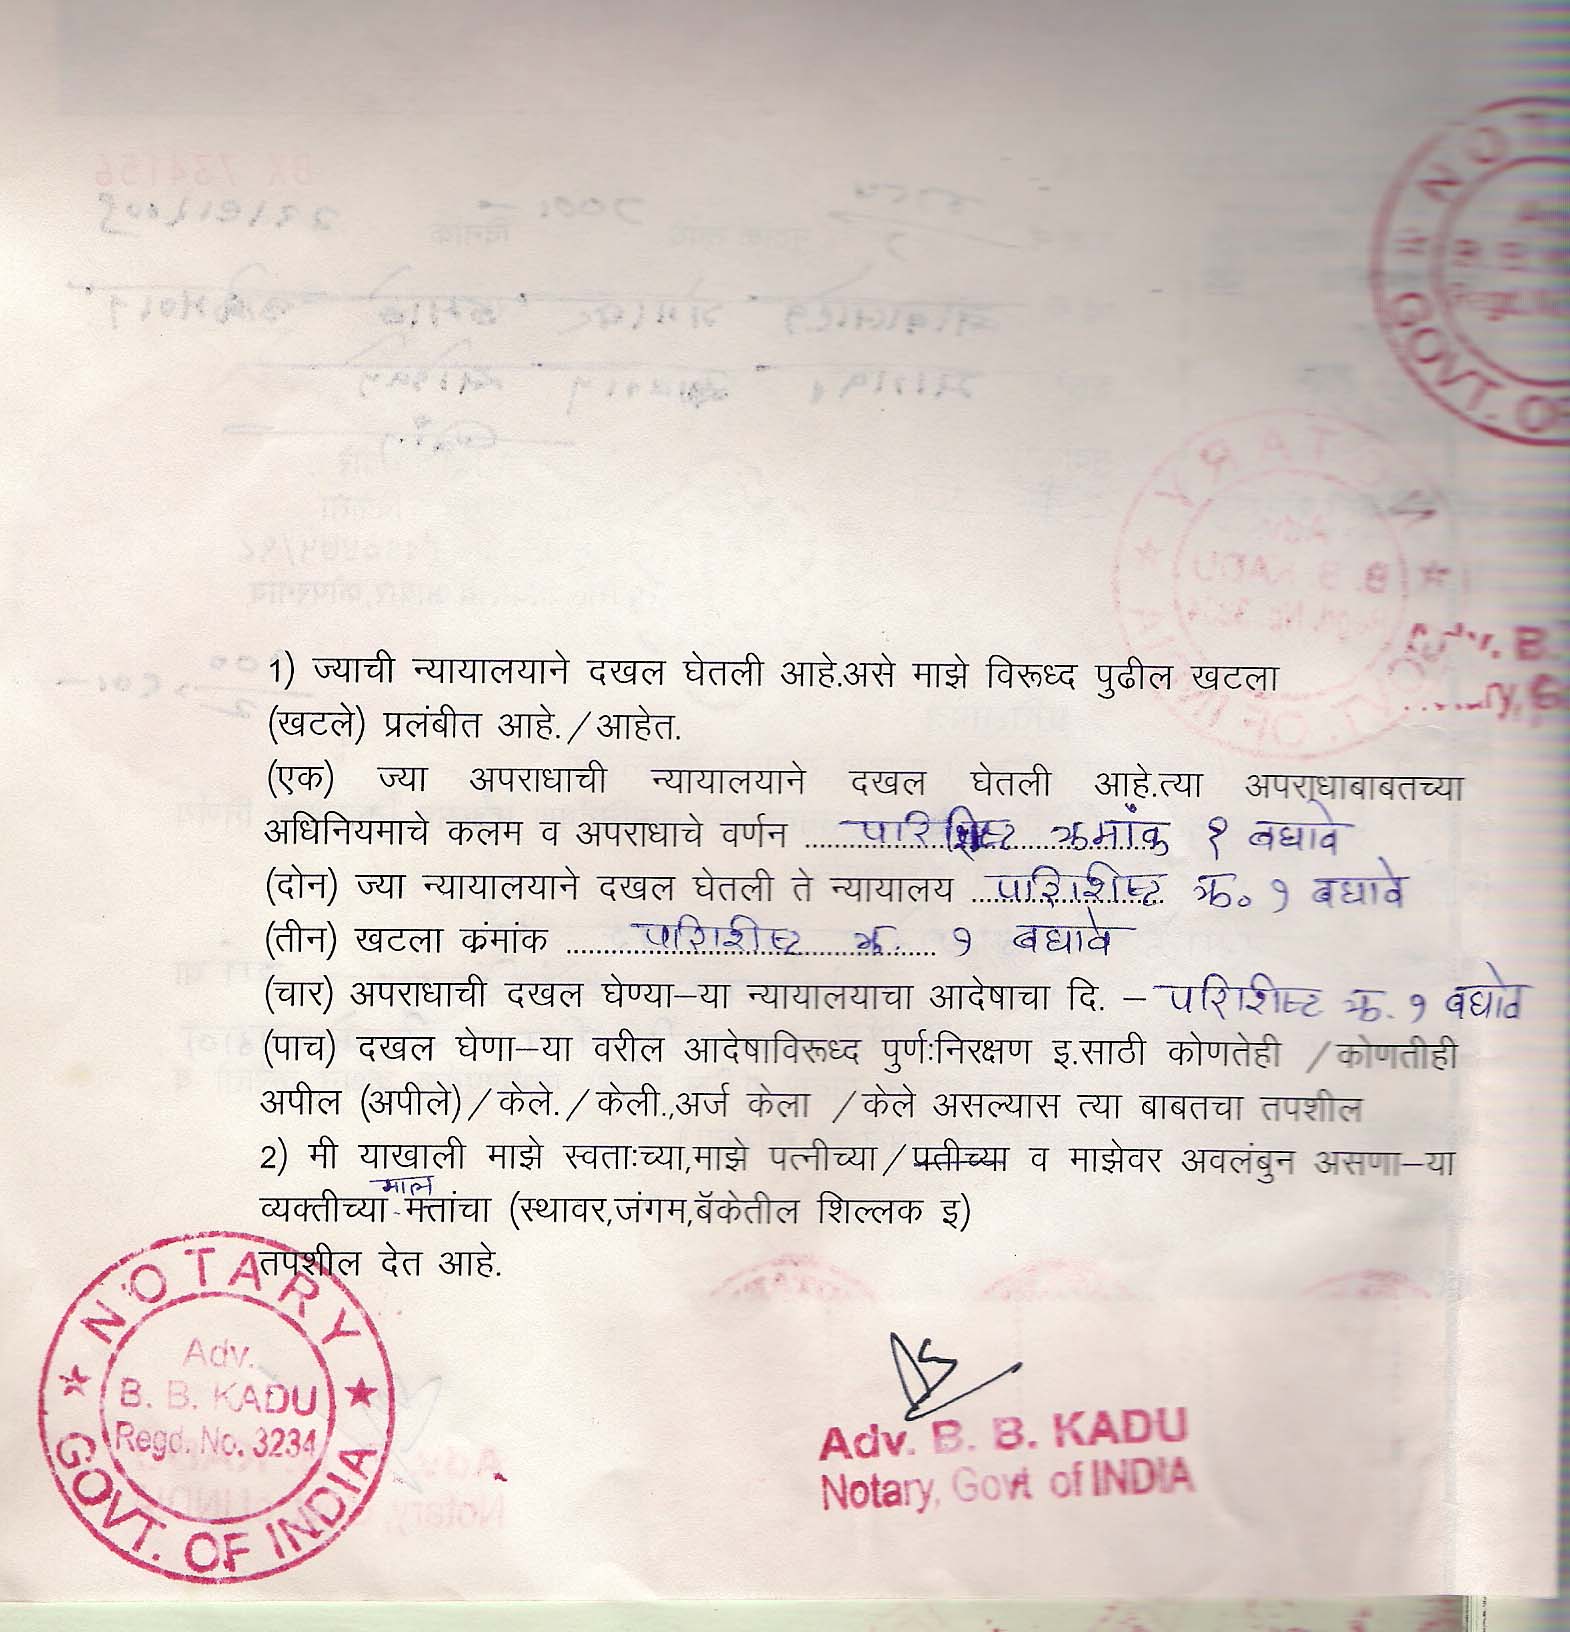 1) ज्याची न्यायालयाने दखल घेतली आहे.असे माझे विरूध्द पुढील खटला
(खटले) प्रलंबीत आहे./आहेत.
(एक) ज्या अपराधाची न्यायालयाने दखल घेतली आहे.त्या अपराधाबाबतच्या
अधिनियमाचे कलम व अपराधाचे वर्णन ........ परिशिष्ट क्रमांक १ बघावे
(दोन) ज्या न्यायालयाने दखल घेतली ते न्यायालय ........ परिशिष्ट क्र. १ बघावे
(तीन) खटला क्रंमांक ........ परिशिष्ट क्र. १ बघावे
(चार) अपराधाची दखल घेण्या–या न्यायालयाचा आदेषाचा दि. – परिशिष्ट क्र. १ बघावे
(पाच) दखल घेणा–या वरील आदेषाविरूध्द पुर्ण:निरक्षण इ.साठी कोणतेही /कोणतीही
अपील (अपीले)/केले./केली.,अर्ज केला /केले असल्यास त्या बाबतचा तपशील
2) मी याखाली माझे स्वताःच्या,माझे पत्नीच्या/पतीच्या व माझेवर अवलंबुन असणा–या
माल
व्यक्तीच्या-मत्तांचा (स्थावर,जंगम,बॅकेतील शिल्लक इ)
तपशील देत आहे.
NOTARY
Adv.
B. B. KADU
Regd. No. 3234
GOVT. OF INDIA
Adv. B. B. KADU
Notary, Govt of INDIA
GOVT. OF